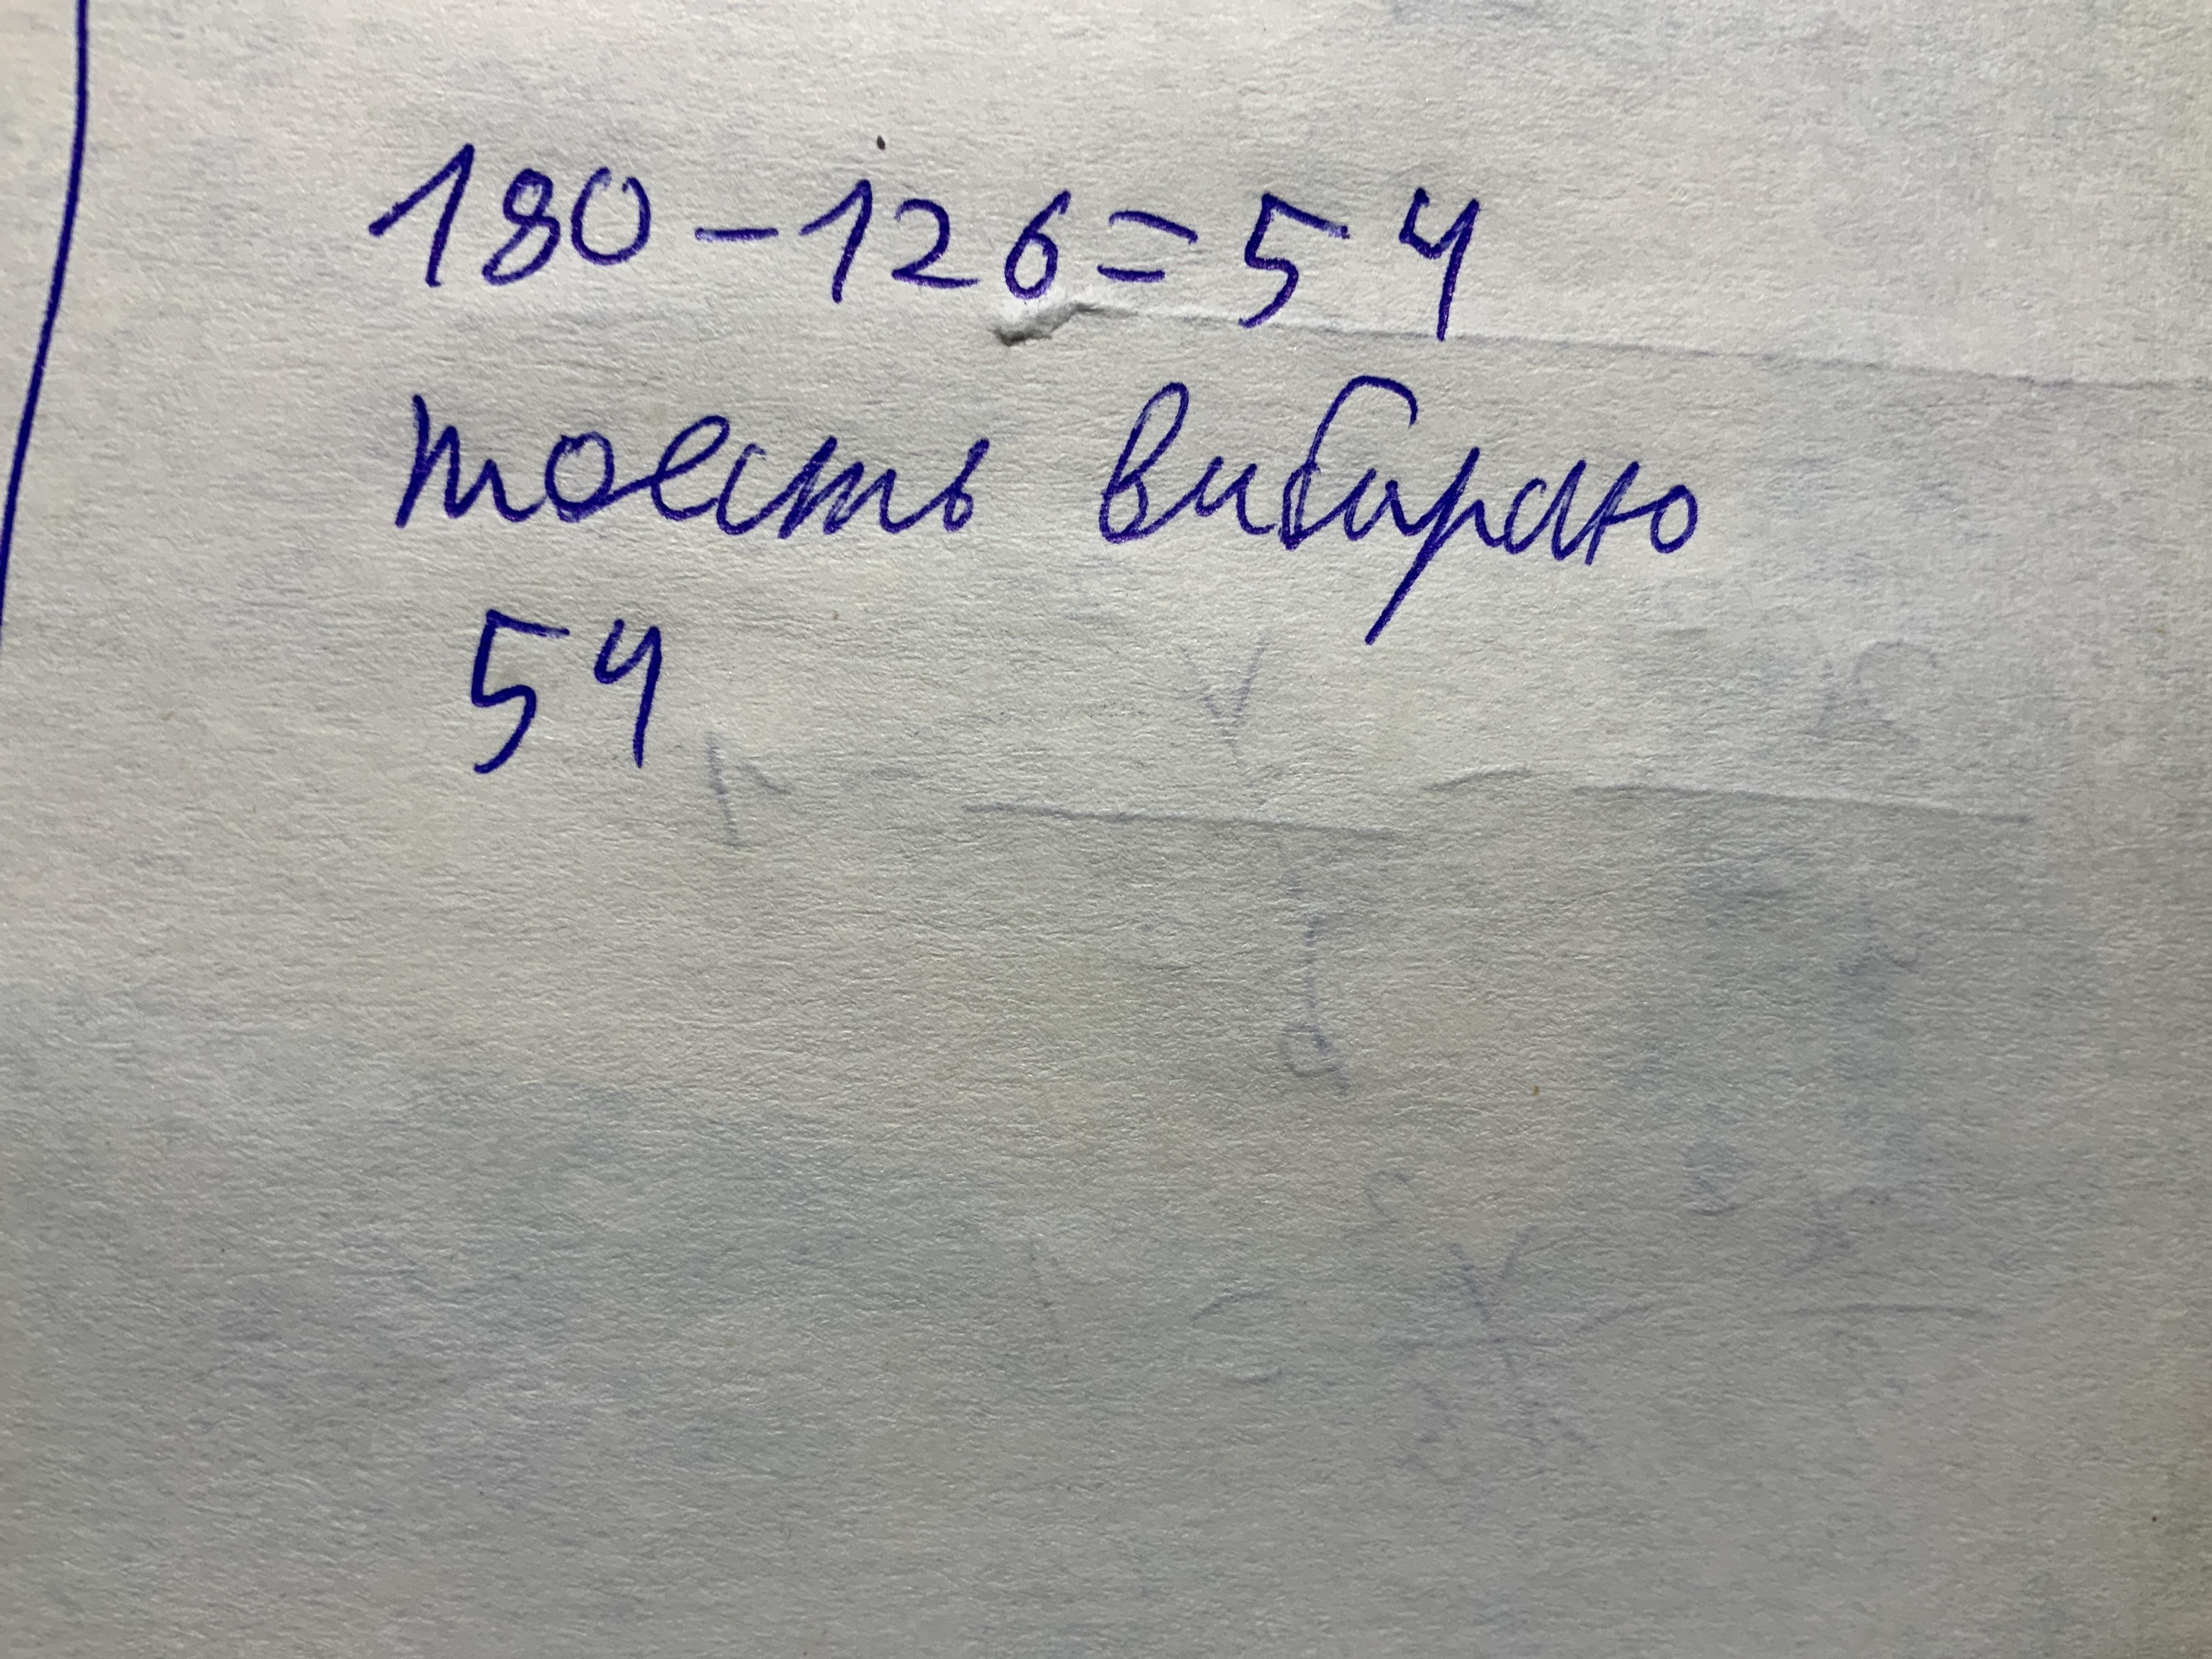 180-126=54
тоесть вибираю
54